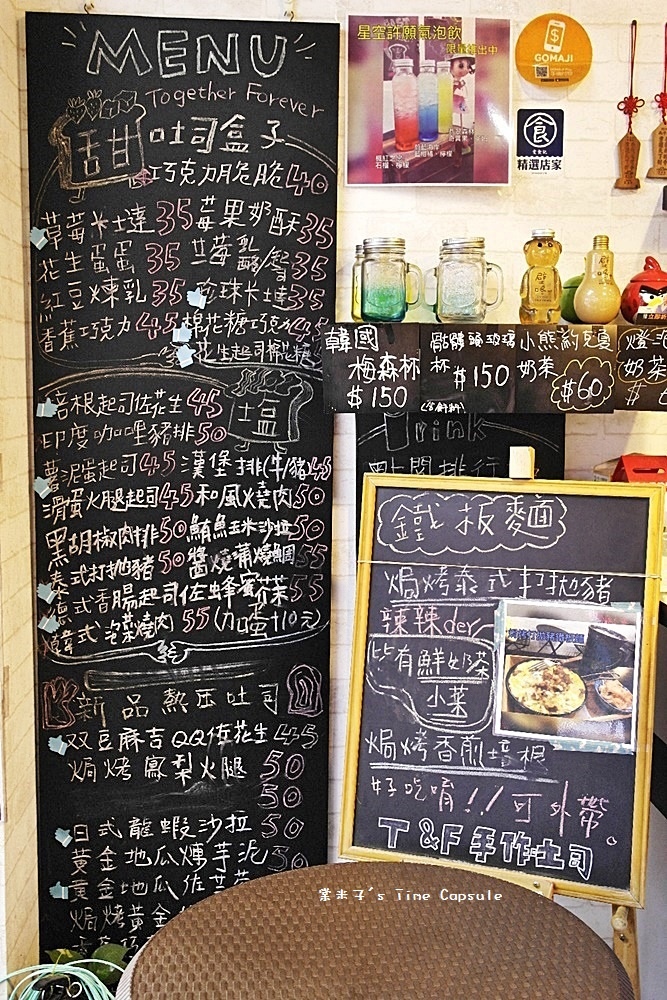 MENU
Together Forever
甜 吐司盒子
巧克力脆脆40
草莓卡士達35 莓果奶酥35
花生蛋蛋35 藍莓乳酪/雪35
紅豆煉乳35 珍珠卡士達35
香蕉巧克力45 棉花糖巧克力45
花生起司棉花糖
鹽
培根起司佐花生45
印度咖哩豬排50
薯泥蛋起司45 漢堡排(牛/豬)45
滑蛋火腿起司45 和風燒肉50
黑胡椒肉排50 鮪魚玉米沙拉50
泰式打拋豬50 醬燒蒲燒鯛55
德式香腸起司佐蜂蜜芥茉55
韓式泡菜燒肉 55 (加蛋+10元)
新品熱压吐司
双豆麻吉QQ佐花生45
焗烤鳳梨火腿 50
50
日式龍蝦沙拉 50
黃金地瓜燻芋泥 50
黃金地瓜佐
焗烤黃金
星空許願氣泡飲
限量推出中
GOMAJI
食
精選店家
韓國
梅森杯
$150
骷髏頭玻璃
杯 $150
小熊約克夏
奶茶
$60
燈泡
奶茶
Drink
點閱排行
鐵板麵
焗烤泰式打拋豬
辣辣der
皆有鮮奶茶
小菜
焗烤香煎培根
好吃唷!!可外帶。
T&F手作土司
棠米子's Time Capsule